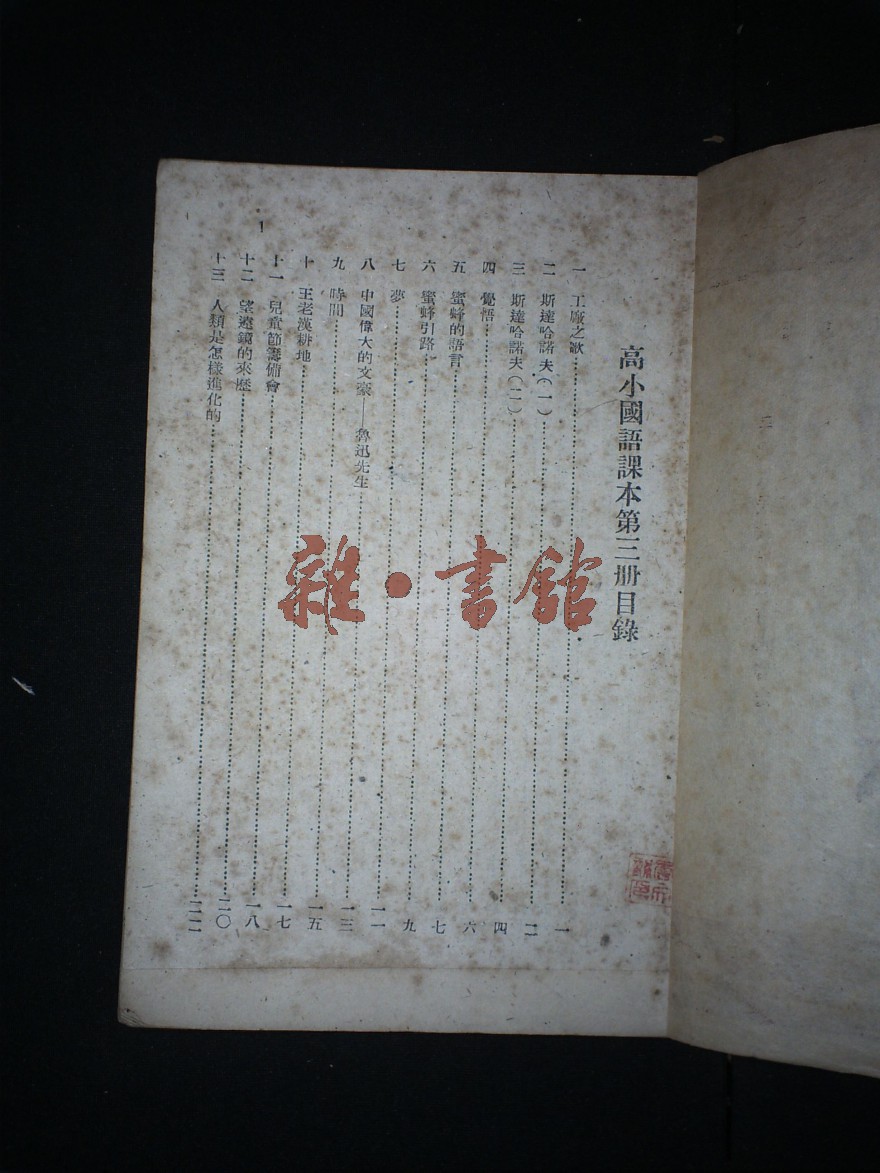 高小國語課本第三册目錄
一 工廠之歌 一
二 斯達哈諾夫(一) 二
三 斯達哈諾夫(二) 四
四 覺悟 六
五 蜜蜂的語言 七
六 蜜蜂引路 九
七 夢 一一
八 中國偉大的文豪——魯迅先生 一三
九 時間 一五
十 王老漢耕地 一七
十一 兒童節籌備會 一八
十二 望遠鏡的來歷 二〇
十三 人類是怎樣進化的 二二
1
雜·書館